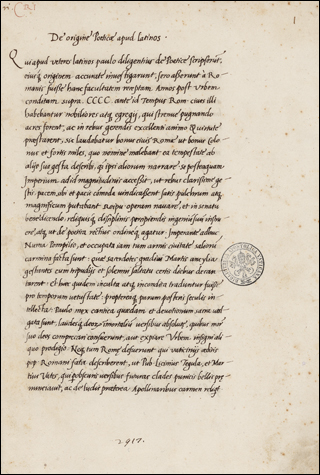 De origine Poeticæ apud latinos.
1
Qui apud veteres latinos paulo diligentius de Poetica scripserunt,
eiusq originem accurate investigarunt, sero asserunt à Ro-
manis fuisse hanc facultatem receptam. Annos post Urbem
conditam supra CCCC. ante id tempus Rom. cives illi
habebantur nobiliores atq egregii, qui strenue pugnando
acres forent, ac in rebus gerendis excellenti animo
præstarent, sic laudabatur bonus civis Romæ ut bonus Colo-
nus et fortis miles, quo nomine malebant ea tempestate ab
alijs sua gesta describi, q ipsi aliorum narrare. posteaquam
Imperium ad id magnitudinis accessit, ut rebus clarissime ge-
stis pacem, obi et pacis comoda vindicassent satis pulchrum atq
magnificum putabant Reipu operam navare, et in senatu
bene dicendo, reliquisq disciplinis percipiendis ingenuisq
atq ut de poetica rectius ordinẽq agatur. Imperante adhuc
Numa Pompilio, et occupata iam tum armis civitate saliorũ
carmina facta sunt: quæ sacerdotes gradivi Martis ancylia
gestantes cum tripudijs et solemni saltatu certis diebus decan-
tarent. et hæc quidem inculta atq incondita traduntur fuisse
pro temporum vetustate: propterea parum posteris seculis in-
tellecta. Paulo mex cantica quædam et devotionum sacra vul-
gata sunt, laudesq deorũ immortaliũ versibus absolutæ, quibus mor-
suos deos compecari consueverunt, aut expiare Urbem insigni ali-
quo prodigio. Neq tum Romæ defuerunt qui vaticinijs nobis
pop. Romani fata describerent, ut Pub. Licinius Tegula, et Mar-
tius Vates, qui obscuris versibus futuras clades punici belli præ-
nunciavit, ac de ludis præterea Apollinaribus carmen religi-
2917.